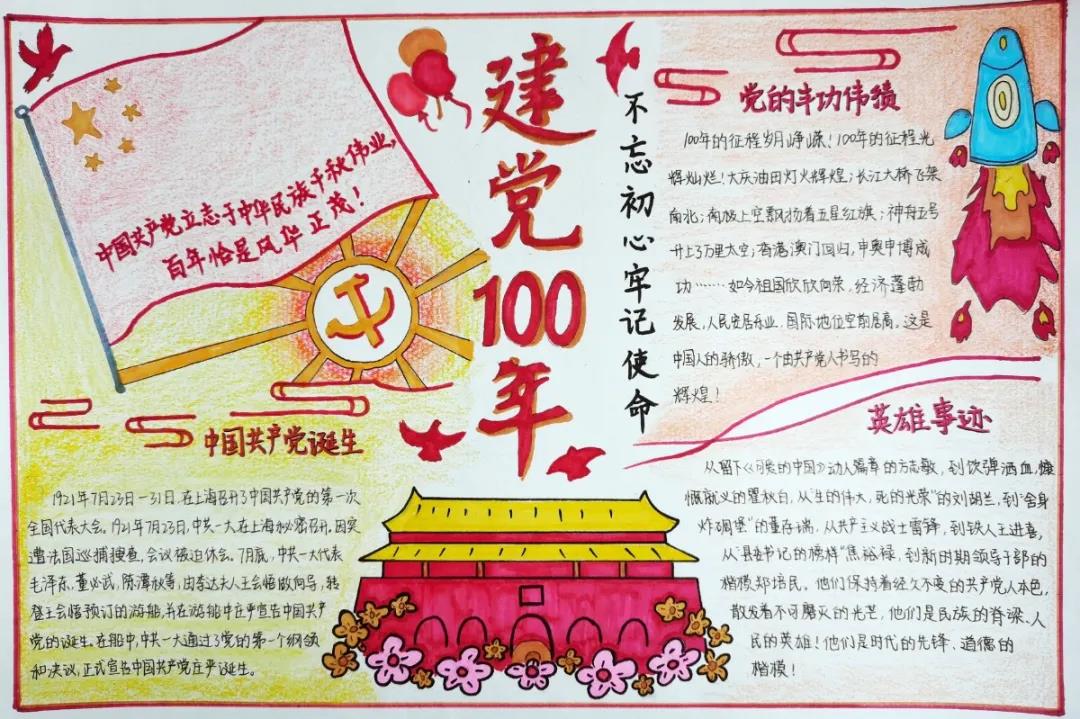 中国共产党立志于中华民族千秋伟业,
百年恰是风华正茂!
建党100年
不忘初心牢记使命
党的丰功伟绩
100年的征程岁月峥嵘!100年的征程光
辉灿烂!大庆油田灯火辉煌;长江大桥飞架
南北;南极上空飘扬着五星红旗;神舟五号
升上了万里太空;香港澳门回归,申奥申博成
功……如今祖国欣欣向荣,经济蓬勃
发展,人民安居乐业,国际地位空前居高。这是
中国人的骄傲,一个由共产党人书写的
辉煌!
中国共产党诞生
1921年7月23日-31日,在上海召开了中国共产党的第一次
全国代表大会。1921年7月23日,中共一大在上海秘密召开。因突
遭法国巡捕搜查,会议被迫休会。7月底,中共一大代表
毛泽东,董必武,陈潭秋等,由李达夫人王会悟做向导,转
登王会悟预订的游船,并在游船中庄严宣告中国共产
党的诞生。在船中,中共一大通过了党的第一个纲领
和决议,正式宣告中国共产党庄严诞生。
英雄事迹
从留下《可爱的中国》动人篇章的方志敏,到饮弹洒血,慷
慨就义的瞿秋白,从"生的伟大,死的光荣"的刘胡兰,到"舍身
炸碉堡"的董存瑞,从共产主义战士雷锋,到铁人王进喜,
从"县委书记的榜样"焦裕禄,到新时期领导干部的
楷模郑培民。他们保持着经久不变的共产党人本色,
散发着不可磨灭的光芒,他们是民族的脊梁、人
民的英雄!他们是时代的先锋、道德的
楷模!